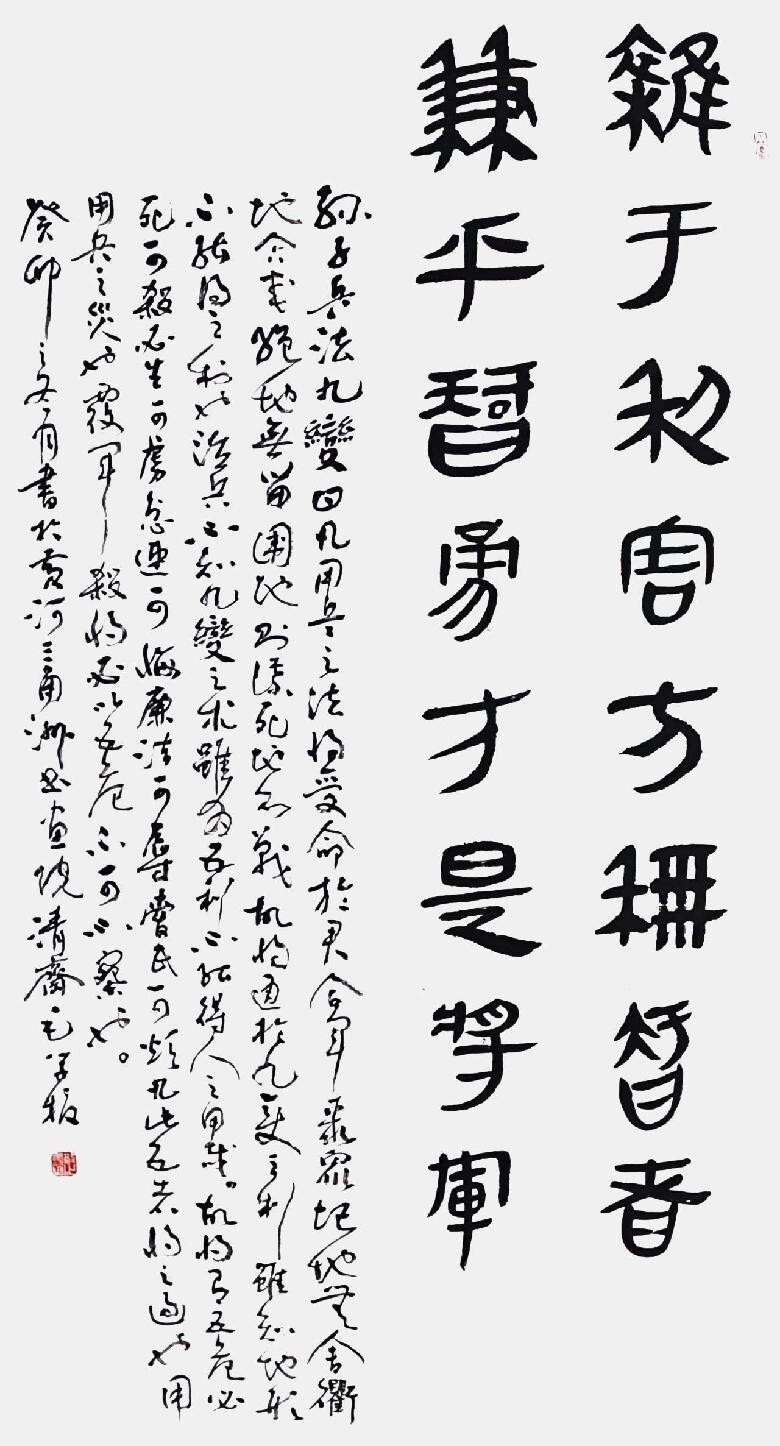 雜于利害方稱智者
兼乎智勇才是將軍
孫子兵法九變曰凡用兵之法將受命於君合軍聚眾圮地無舍衢
地合交絕地無留圍地則謀死地則戰故將通於九變之利雖知地形
不能得之利也治兵不知九變之術雖為五利不能得人之用哉。故將有五危必
死可殺必生可虜忿速可侮廉潔可辱愛民可煩凡此五者將之過也用
用兵之災也覆軍殺將必以五危不可不察也。
癸卯之冬月書於黃河三角洲書畫院清齋毛學振